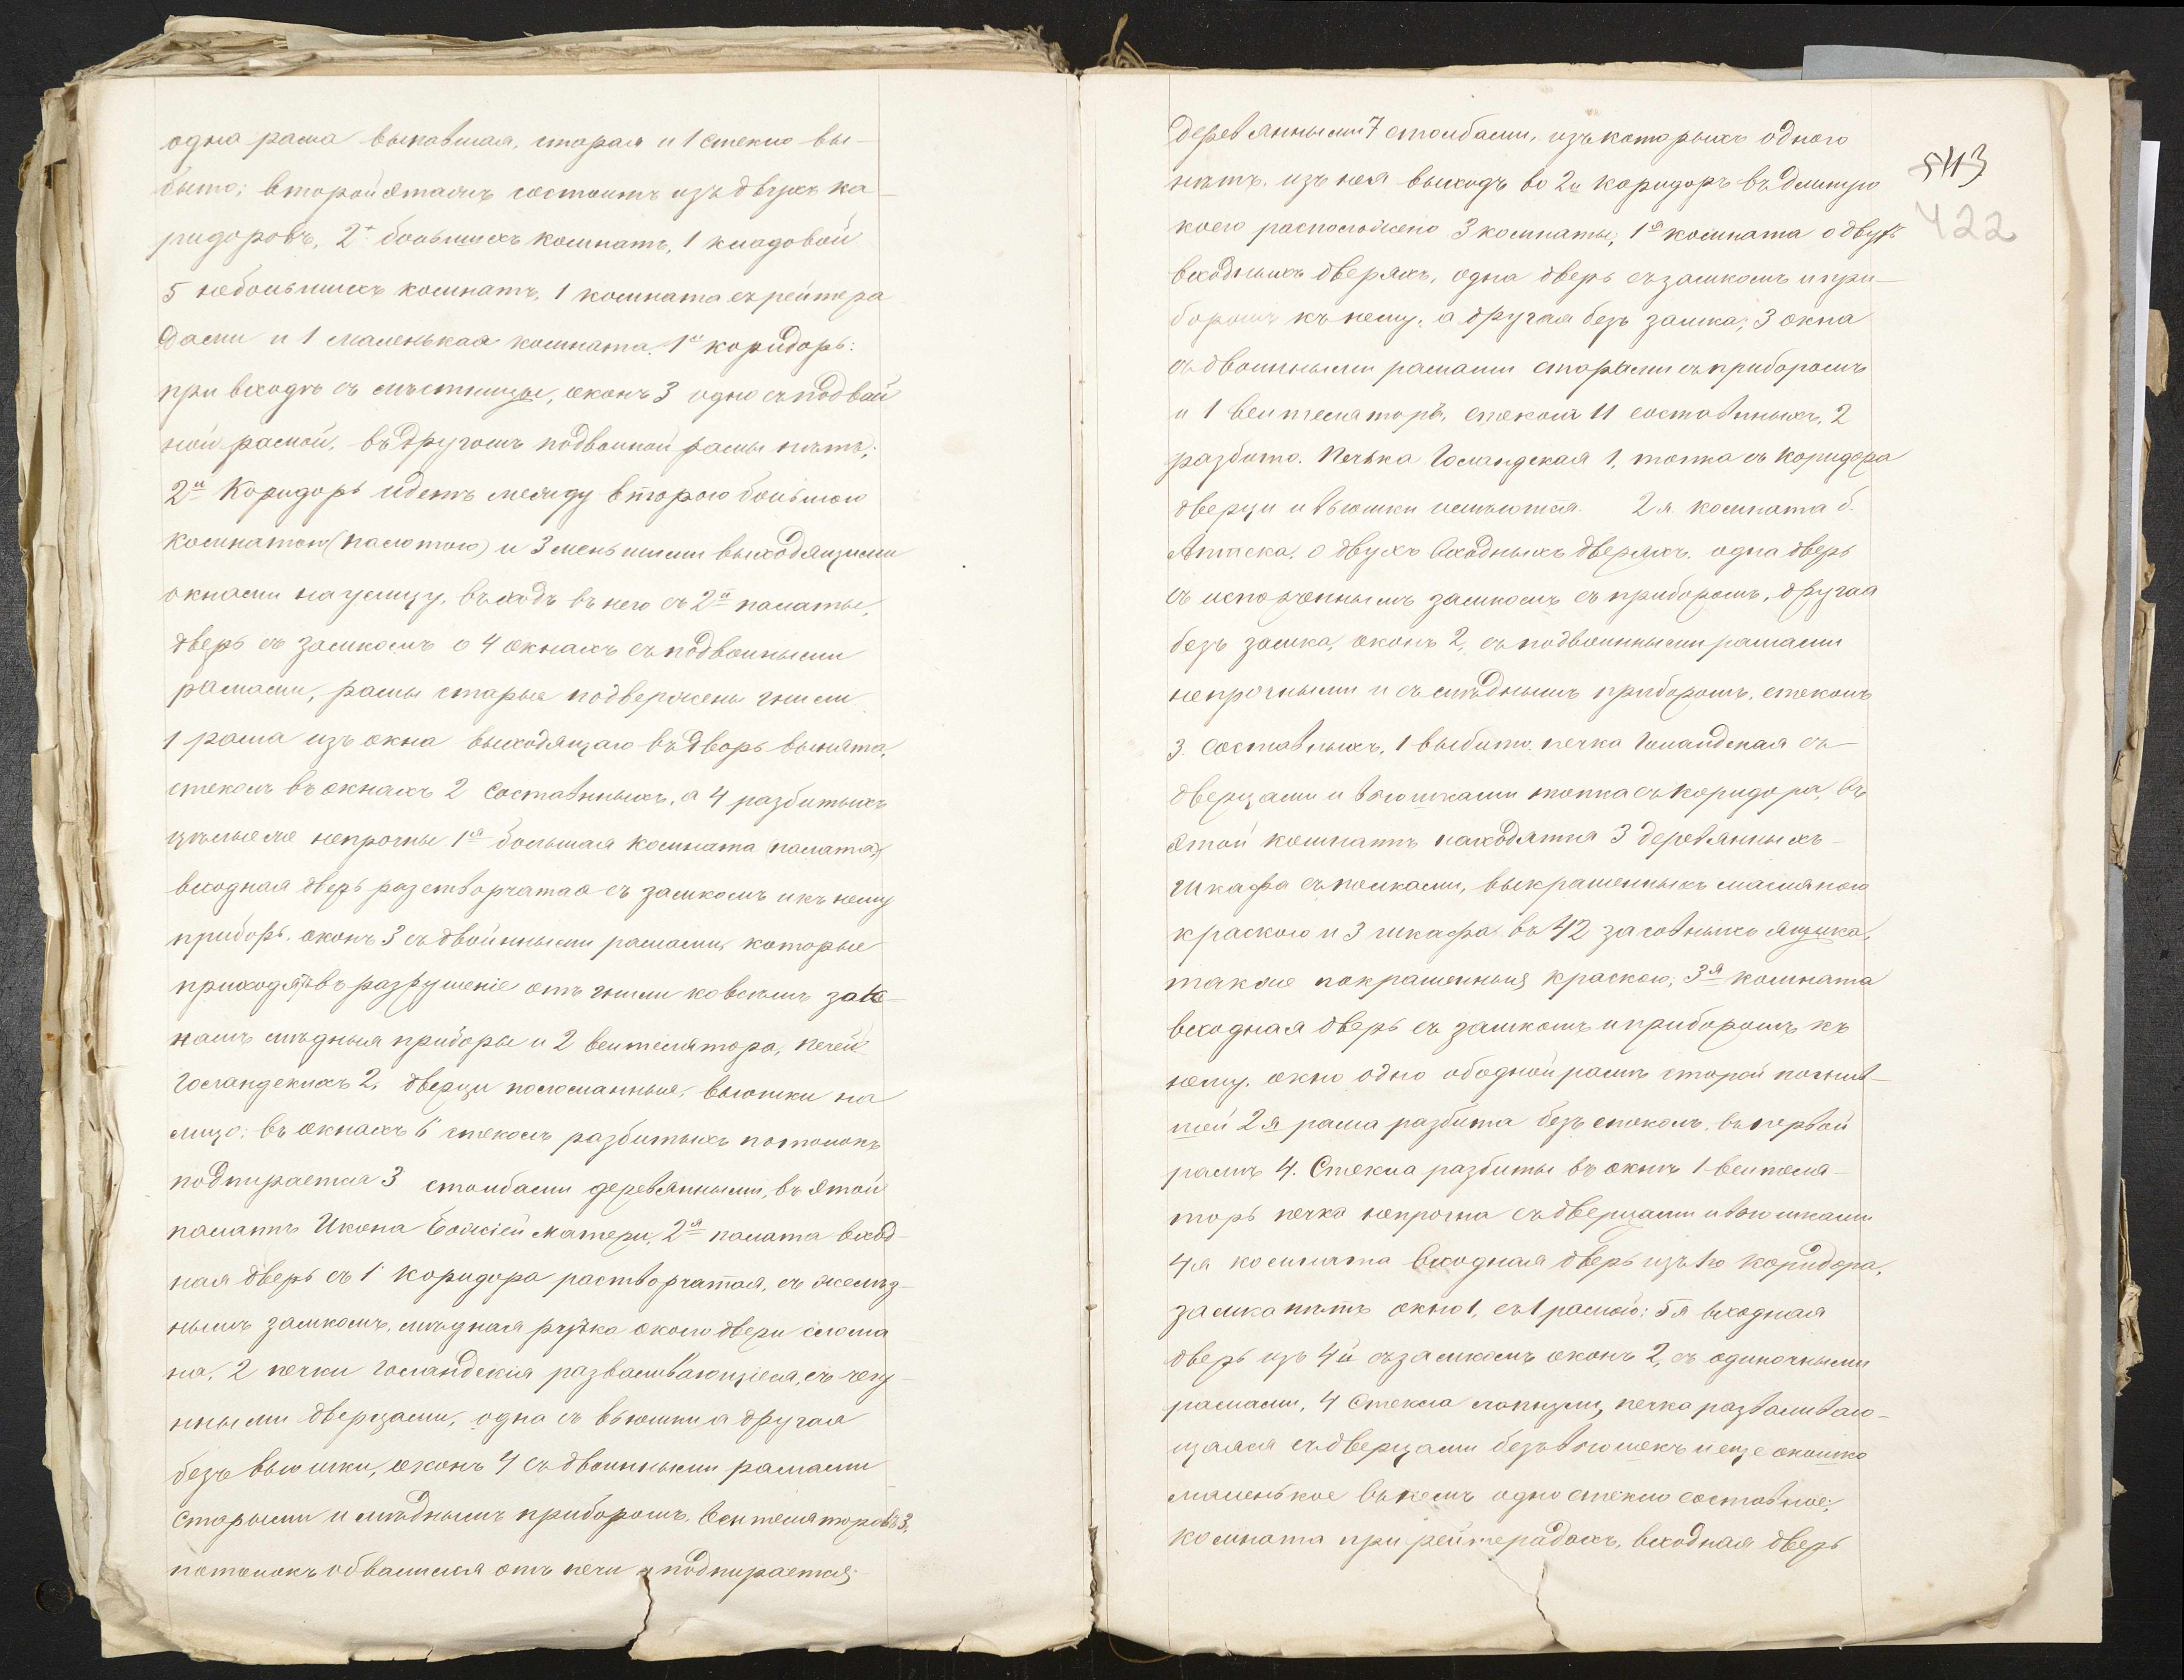 одна рама выпавшая, старая и 1 стекло вы-
бито; второй этажъ состоитъ изъ двухъ ка-
ридоровъ, 2х большихъ комнатъ, 1 кладовой
5 небольшихъ комнатъ, 1 комната съ рейтера
дами и 1 маленькая комната. 1й коридоръ:
при входѣ съ лѣстницы, оконъ 3 одно съ подвой
ной рамой, въ другомъ подвоиной рамы нѣтъ;
2й Коридоръ идетъ между второю большою
комнатою (палатою) и 3 меньшими выходящими
окнами на улицу, въходъ въ него съ 2й палаты,
дверь съ замкомъ о 4 окнахъ съ подвоиными
рамами, рамы старые подвержены гнили
1 рама изъ окна выходящаго въ дворъ вынята,
стеколъ въ окнахъ 2 составныхъ, а 4 разбитыхъ
цѣлые же непрочны 1я большая комната (палата)
входная дверь разстворчатая съ замкомъ и къ нему
приборъ, оконъ 3 съ двойнными рамами, которые
приходятъ въ разрушеніе отъ гнили ко всѣмъ
мѣдныя приборы и 2 вентелятора, печей
Голандскихъ 2, дверцы поломанныя, вьюшки на
лицо; въ окнахъ 6 стеколъ разбитыхъ потолокъ
подпирается 3 столбами деревянными, въ этой
палатѣ Икона Божіей Матери, 2я палата вход-
ная дверь съ 1 коридора растворчатая, съ желѣз-
нымъ замкомъ, мѣдная ручка около двери слома
на, 2 печки голандскія разваливающіеся, съ чугу-
нными дверцами, одна съ вьюшки а другая
безъ вьюшки, оконъ 4 съ двоинными рамами
старыми и мѣднымъ приборомъ, вентеляторовъ 3,
потолокъ обвалился отъ печи и подпирается
деревянными 7 столбами, изъ которыхъ одного
нѣтъ, изъ нея выходъ во 2й коридоръ въ длинну
коего расположено 3 комнаты, 1я комната о двухъ
входныхъ дверяхъ, одна дверь съ замкомъ и при-
боромъ къ нему, а другая безъ замка; 3 окна
съ двоинными рамами старыми съ приборомъ
и 1 вентеляторъ, стеколъ 11 составныхъ, 2
разбито. Печька Голандская 1, топка съ коридора
дверцы и вьюшки имѣются. 2я комната б.
Аптека, о двухъ входныхъ дверяхъ, одна дверь
съ испорченнымъ замкомъ съ приборомъ, другая
безъ замка, оконъ 2, съ подвоинными рамами
непрочными и съ мѣднымъ приборомъ, стеколъ
3 составныхъ, 1 выбито, печка Голандская съ
дверцами и вьюшками топка съ коридора, въ
этой комнатѣ находятся 3 деревянныхъ
шкафа съ полками, выкрашенныхъ масляною
краскою и 3 шкафа въ 42 ящика,
также покрашенныя краскою, 3я комната
входная дверь съ замкомъ и приборомъ къ
нему, окно одно объ одной рамѣ старой погнив-
шей 2я рама разбита безъ стеколъ, въ первой
рамѣ 4 Стекла разбиты въ окнѣ 1 вентеля-
торъ печка непрочна съ дверцами и вьюшками
4я комната входная дверь изъ 1го коридора,
замка нѣтъ окно 1, съ 1 рамой; 5я входная
дверь изъ 4й съ замкомъ оконъ 2, съ одиночными
рамами, 4 Стекла лопнули, печка разваливаю-
щаяся съ дверцами безъ вьюшекъ и еще окошко
маленькое въ немъ одно стекло составное,
комната при рейтерадахъ, входная дверь
543
422